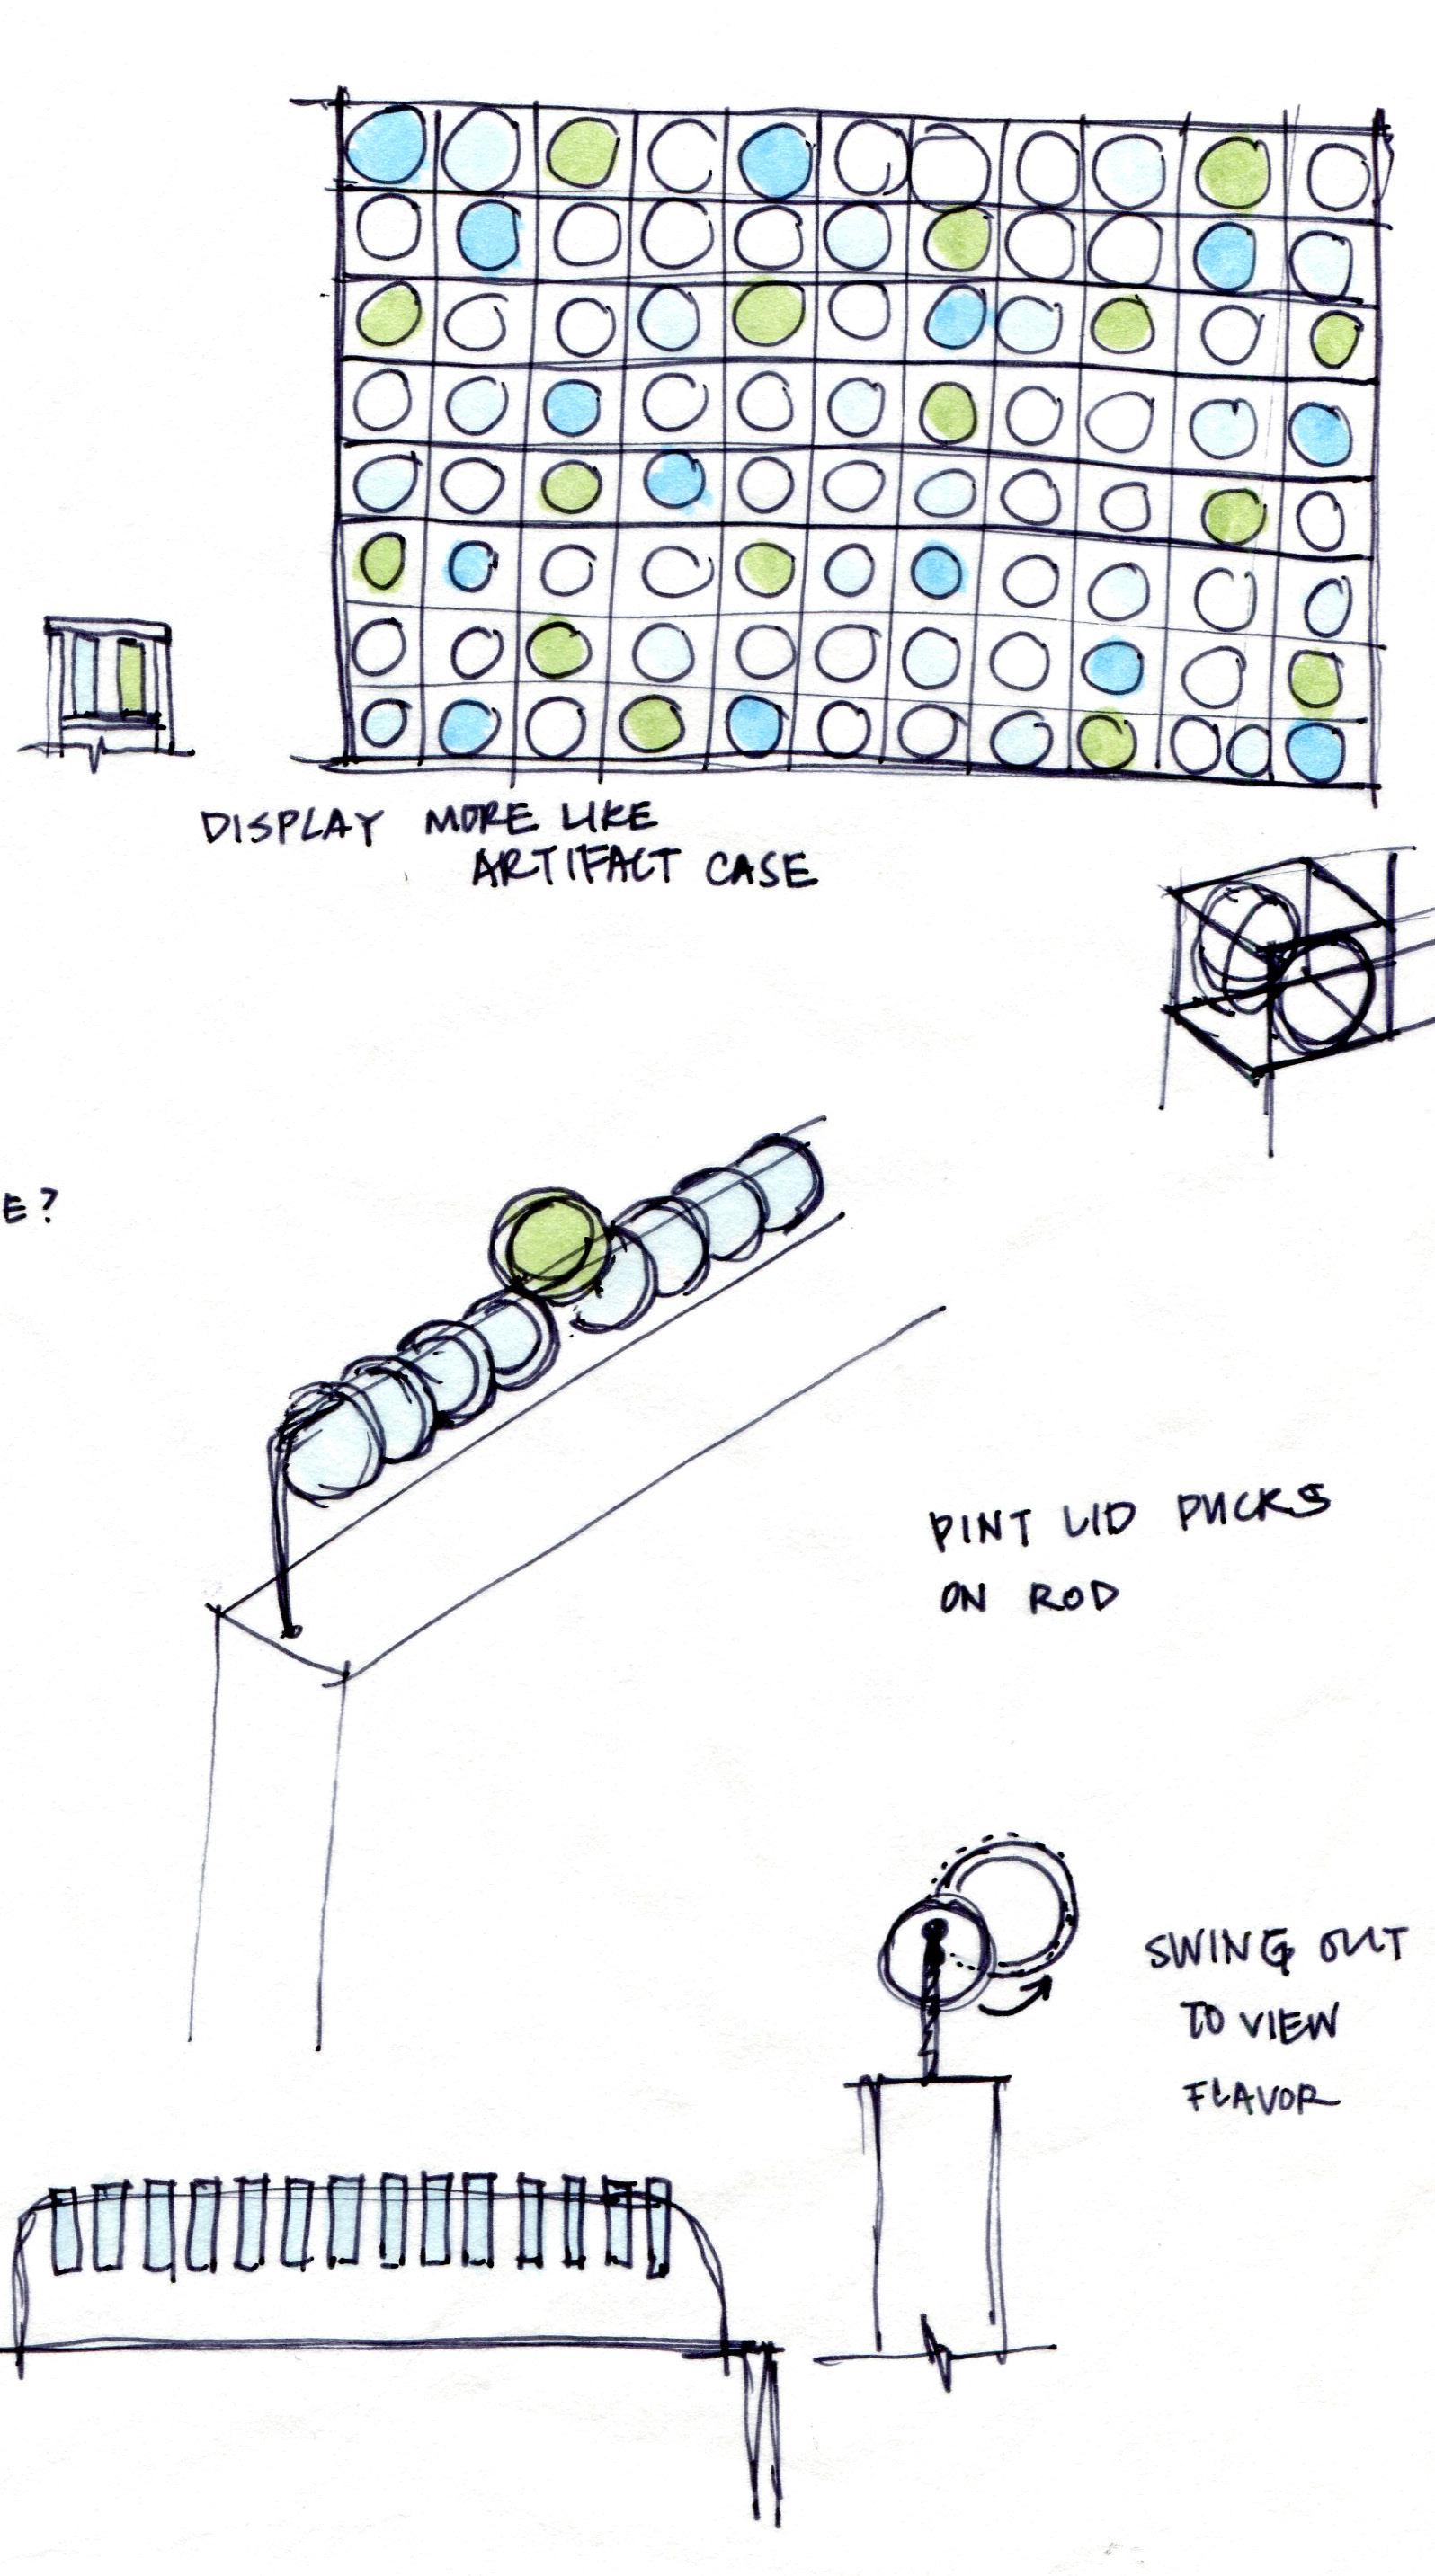 DISPLAY MORE LIKE
ARTIFACT CASE
E?
PINT LID PUCKS
ON ROD
SWING OUT
TO VIEW
FLAVOR